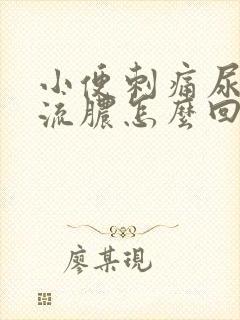 小便刺痛尿
流膿怎麼回
廖某現